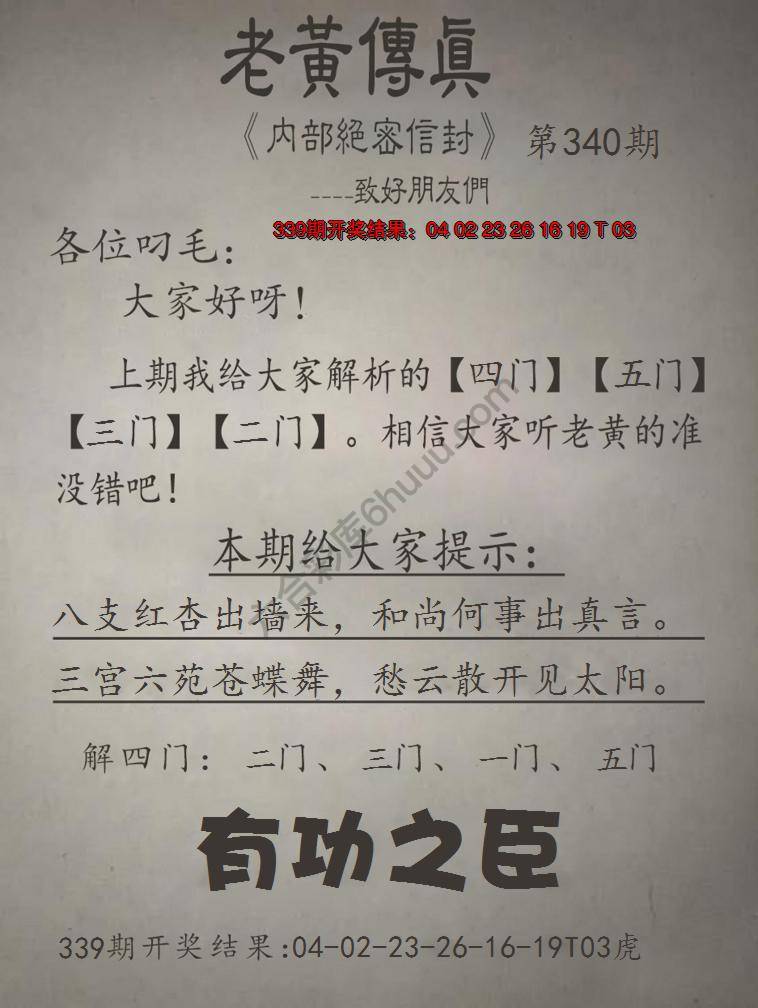 老黃傳眞
《内部絕密信封》 第340期
----致好朋友們
339期开奖结果：04 02 23 26 16 19 T 03
各位叼毛：
大家好呀！
上期我给大家解析的【四门】【五门】
【三门】【二门】。相信大家听老黄的准
没错吧！
本期给大家提示：
八支红杏出墙来，和尚何事出真言。
三宫六苑苍蝶舞，愁云散开见太阳。
解四门： 二门、 三门、 一门、 五门
有功之臣
339期开奖结果:04-02-23-26-16-19T03虎
六合彩库6huuu.com